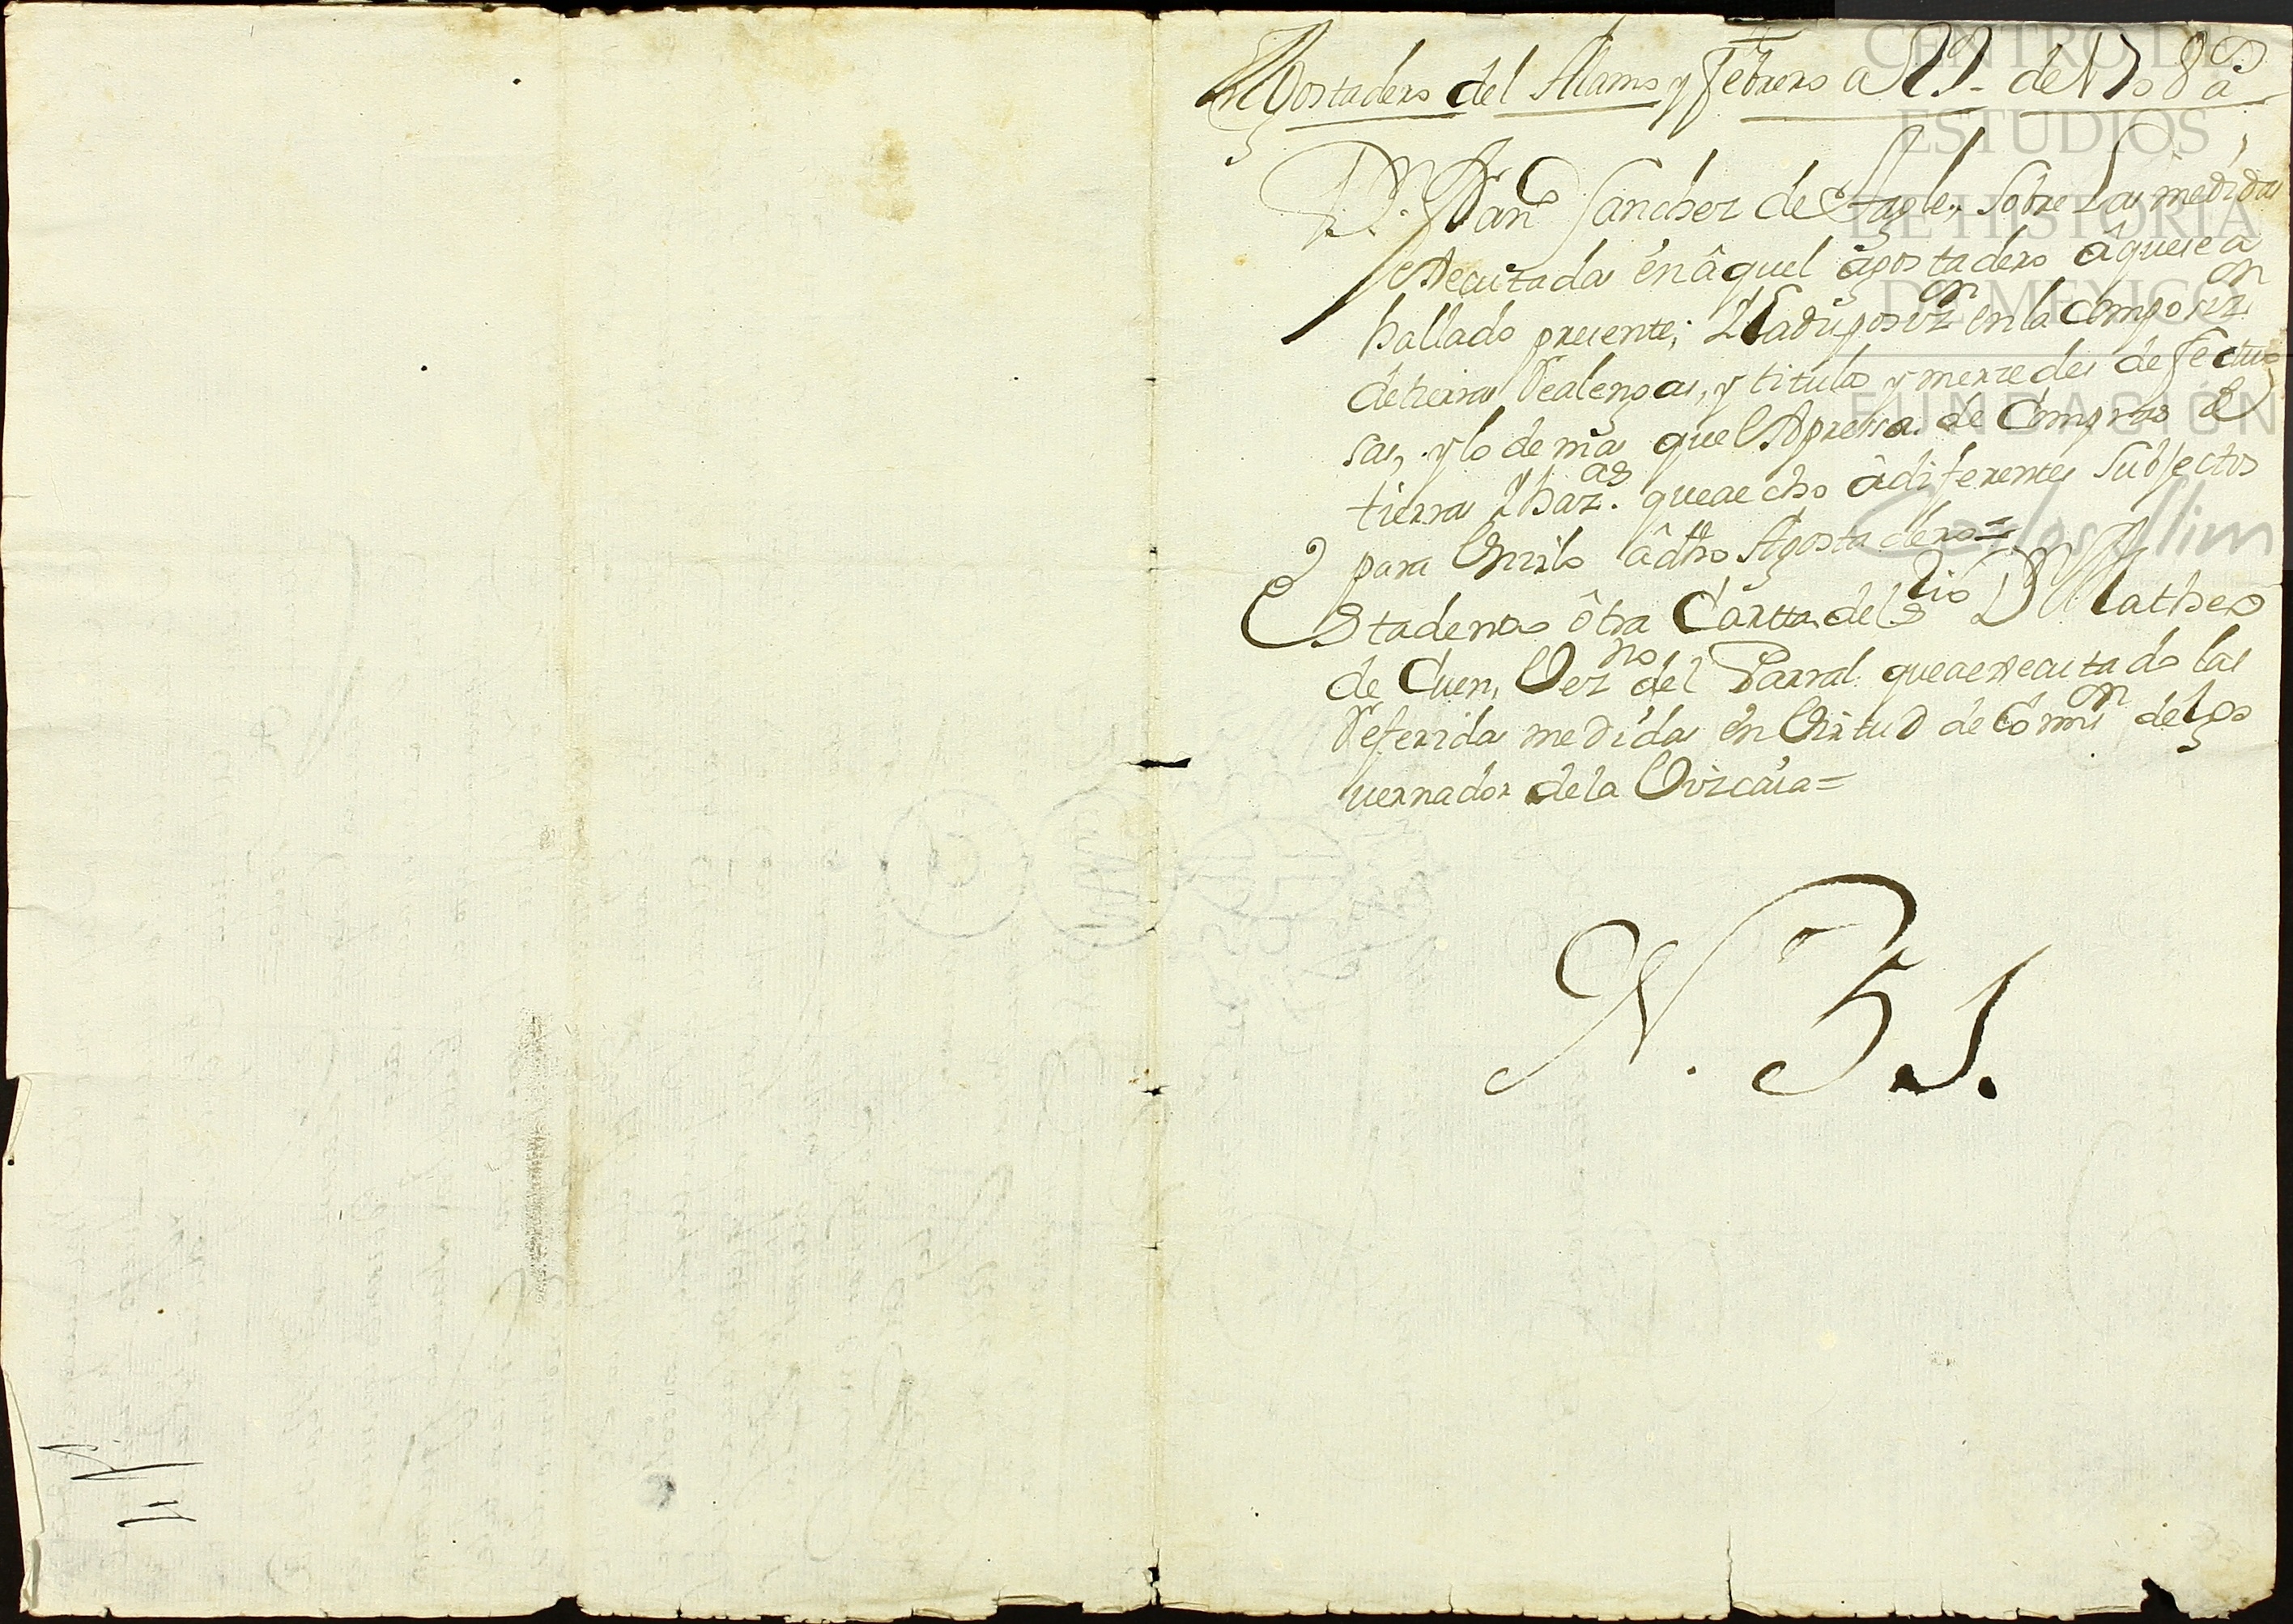 Agostadero del Alamo y febrero a 21 de 1708 as
Dn. Franco Sanchez de tagle, sobre Las medidas
executadas en aquel agostadero aquese a
hallado presente; Y la disposon en la composizon
de tierras Realengas, y titulos y mersedes defectuo
sas, y lo demas que expressa de Compras de
tierras Y hazas. que ae echo a diferentes Subjectos
para Vnirlo a dho Agostadero=
Esta dentro otra Cartta de Dn Matheo
de Cuen, Vezno del Parral que ae executado las
Referidas medidas en Virtud de Comion del Go
uernador de la Vizcaia=
N. 51.
CENTRO DE
ESTUDIOS
DE HISTORIA
DE MEXICO
FUNDACIÓN
Carlos Slim